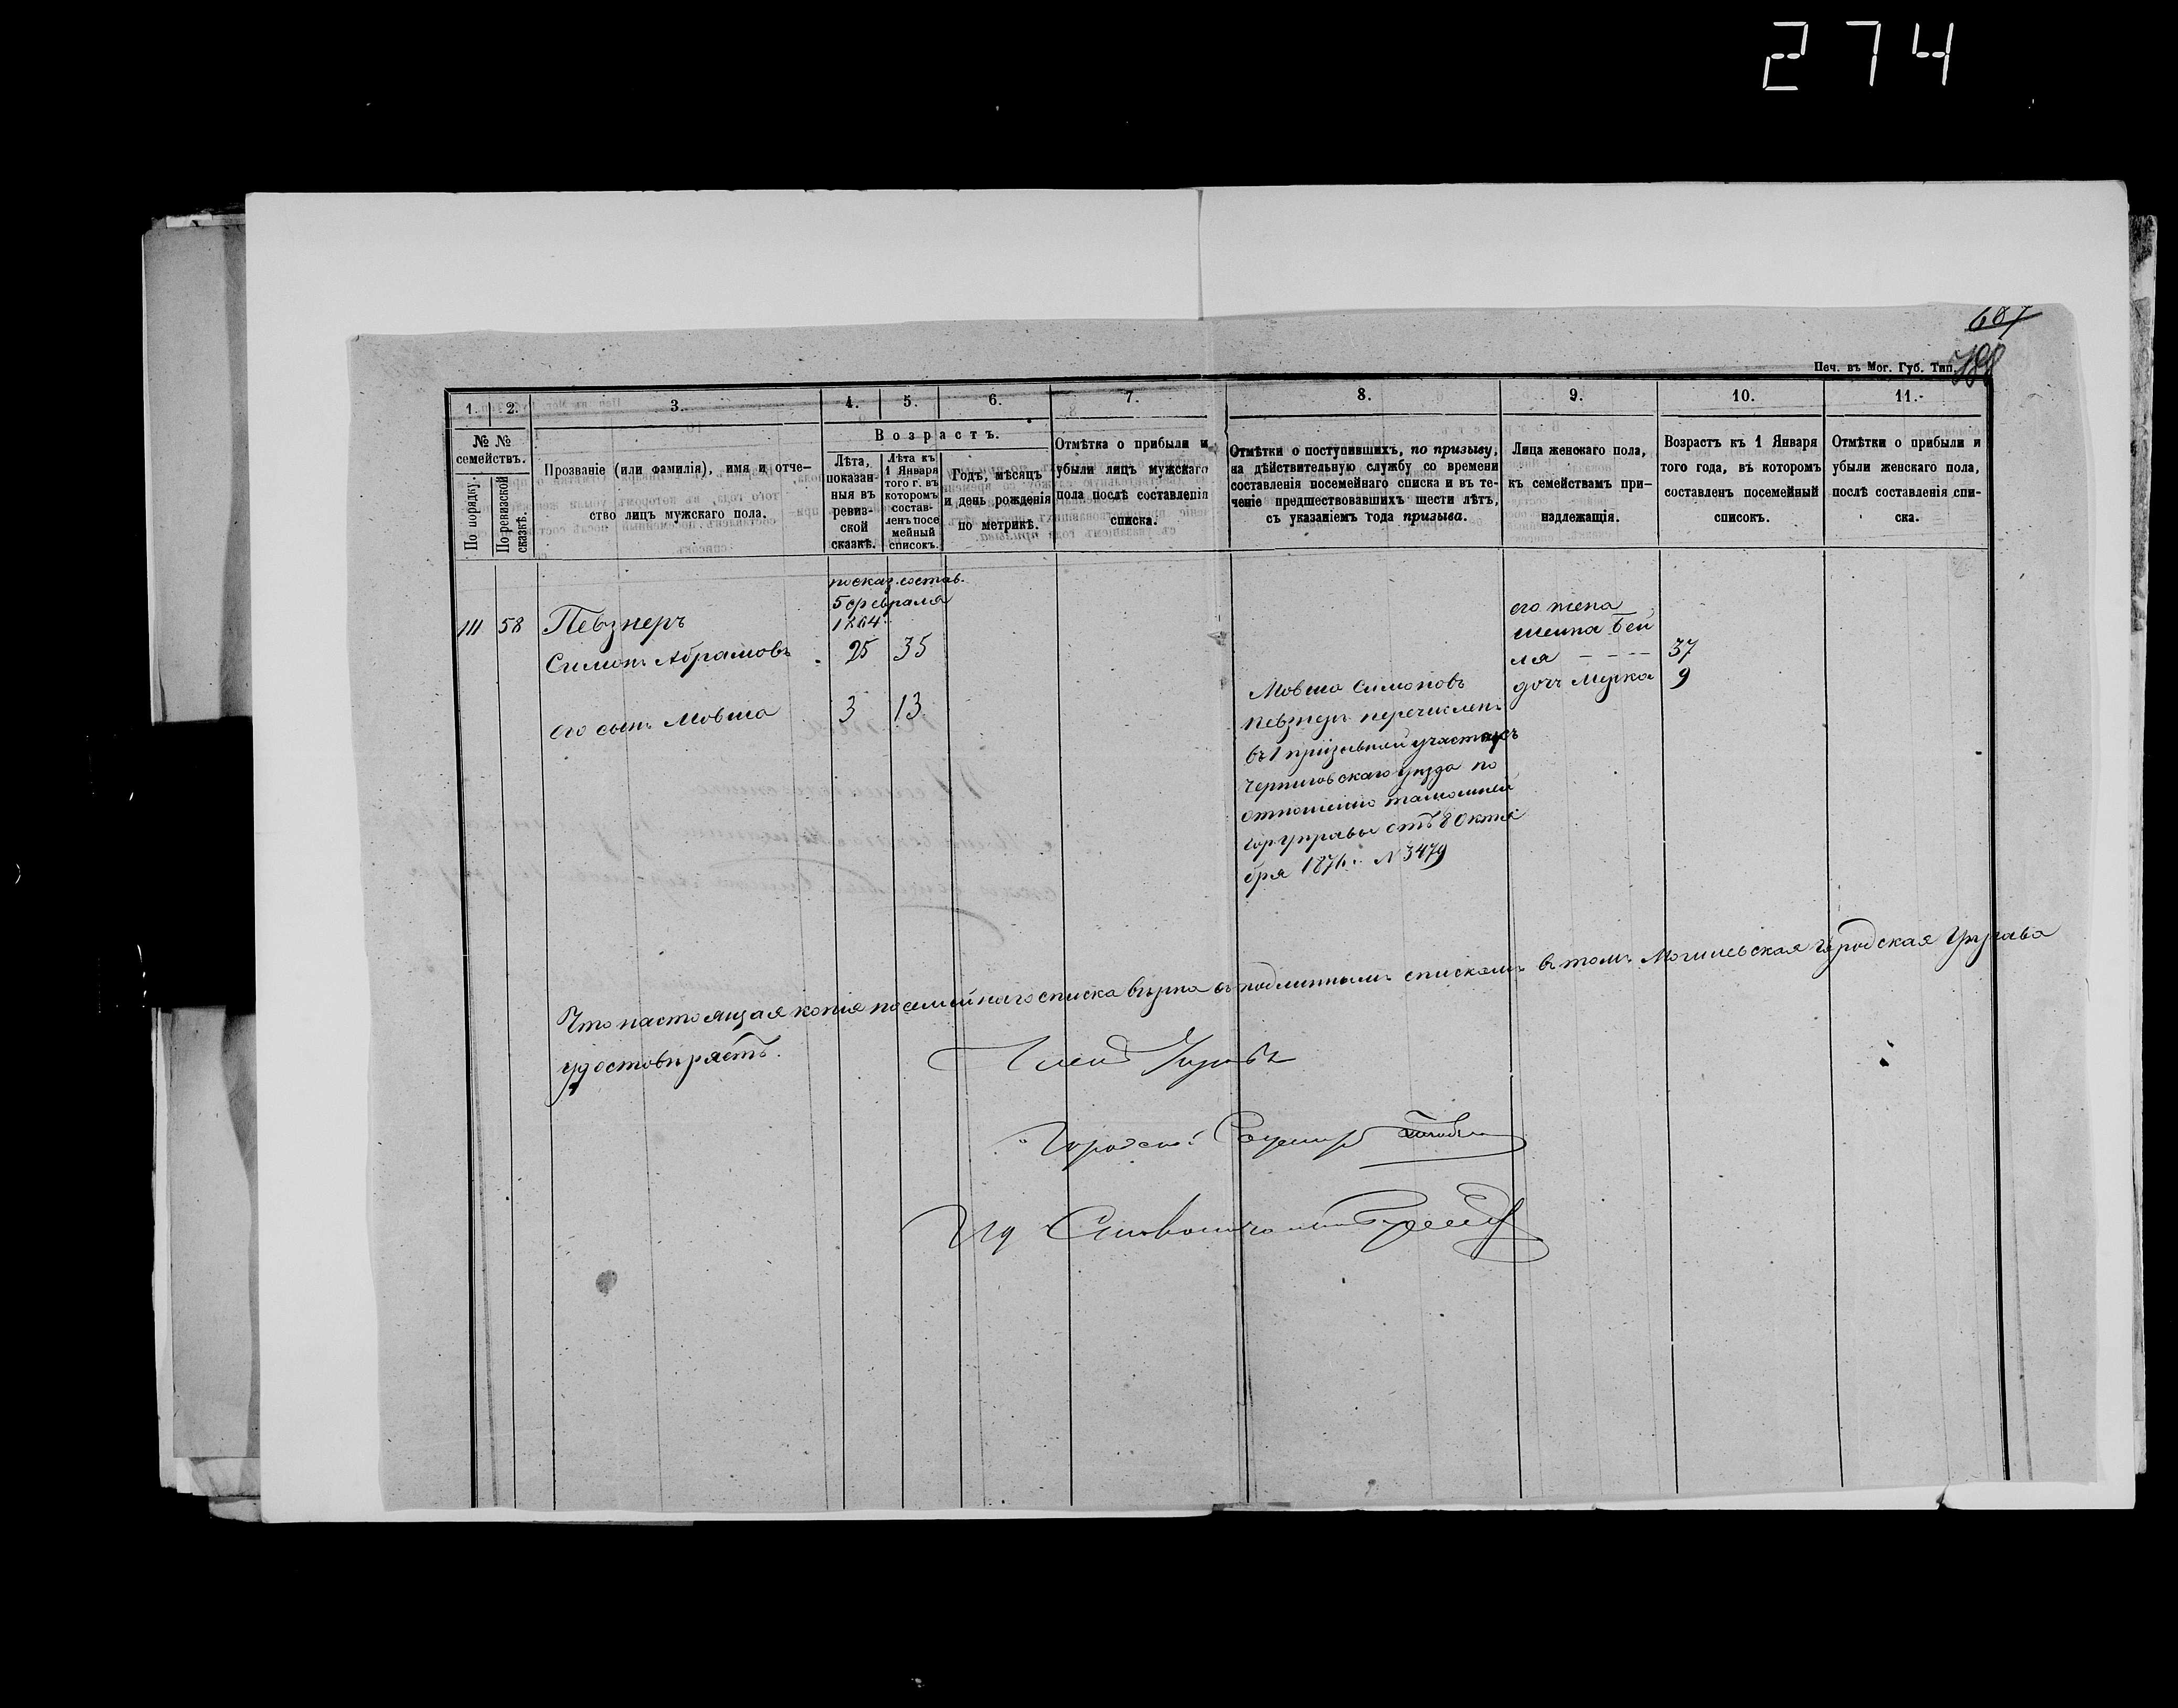 274
687
Печ. въ Мог. Губ. Тип.
1. 2. 3. 4. 5. 6. 7. 8. 9. 10. 11.
№ № семействъ.
По порядку.
По ревизской сказкѣ.
Прозваніе (или фамилія), имя и отче-
ство лицъ мужскаго пола.
Возрастъ.
Лѣта,
показан-
ныя въ
ревиз-
ской
сказкѣ.
Лѣта къ
1 Января
того г. въ
которомъ
состав-
ленъ посе
мейный
списокъ.
Годъ, мѣсяцъ
и день рожденія
по метрикѣ.
Отмѣтка о прибыли и
убыли лицъ мужскаго
пола послѣ составленія
списка.
Отмѣтки о поступившихъ, по призыву,
на дѣйствительную службу со времени
составленія посемейнаго списка и въ те-
ченіе предшествовавшихъ шести лѣтъ,
съ указаніемъ года призыва.
Лица женскаго пола,
къ семействамъ при-
надлежащія.
Возрастъ къ 1 Января
того года, въ которомъ
составленъ посемейный
списокъ.
Отмѣтки о прибыли и
убыли женскаго пола,
послѣ составленія спи-
ска.
по сказ. состав.
5 февраля
1864
111 58 Певзнеръ
Симонъ Абрамовъ 25 35
его сынъ Мовша 3 13
Мовша Симоновъ
Певзнеръ перечисленъ
въ 1 призывной участокъ
Черниговскаго уѣзда по
отношенію тамошней
гор управы отъ 8 Октя
бря 187 г. № 3479
его жена
Шейна Бей
ля - - - - 37
дочь Мирка 9
Что настоящая копія посемейнаго списка вѣрна съ подлиннымъ спискомъ въ томъ Могилевская Городская Управа
удостовѣряетъ.
Членъ Управы
Городской Секретарь
И д Столоначальника